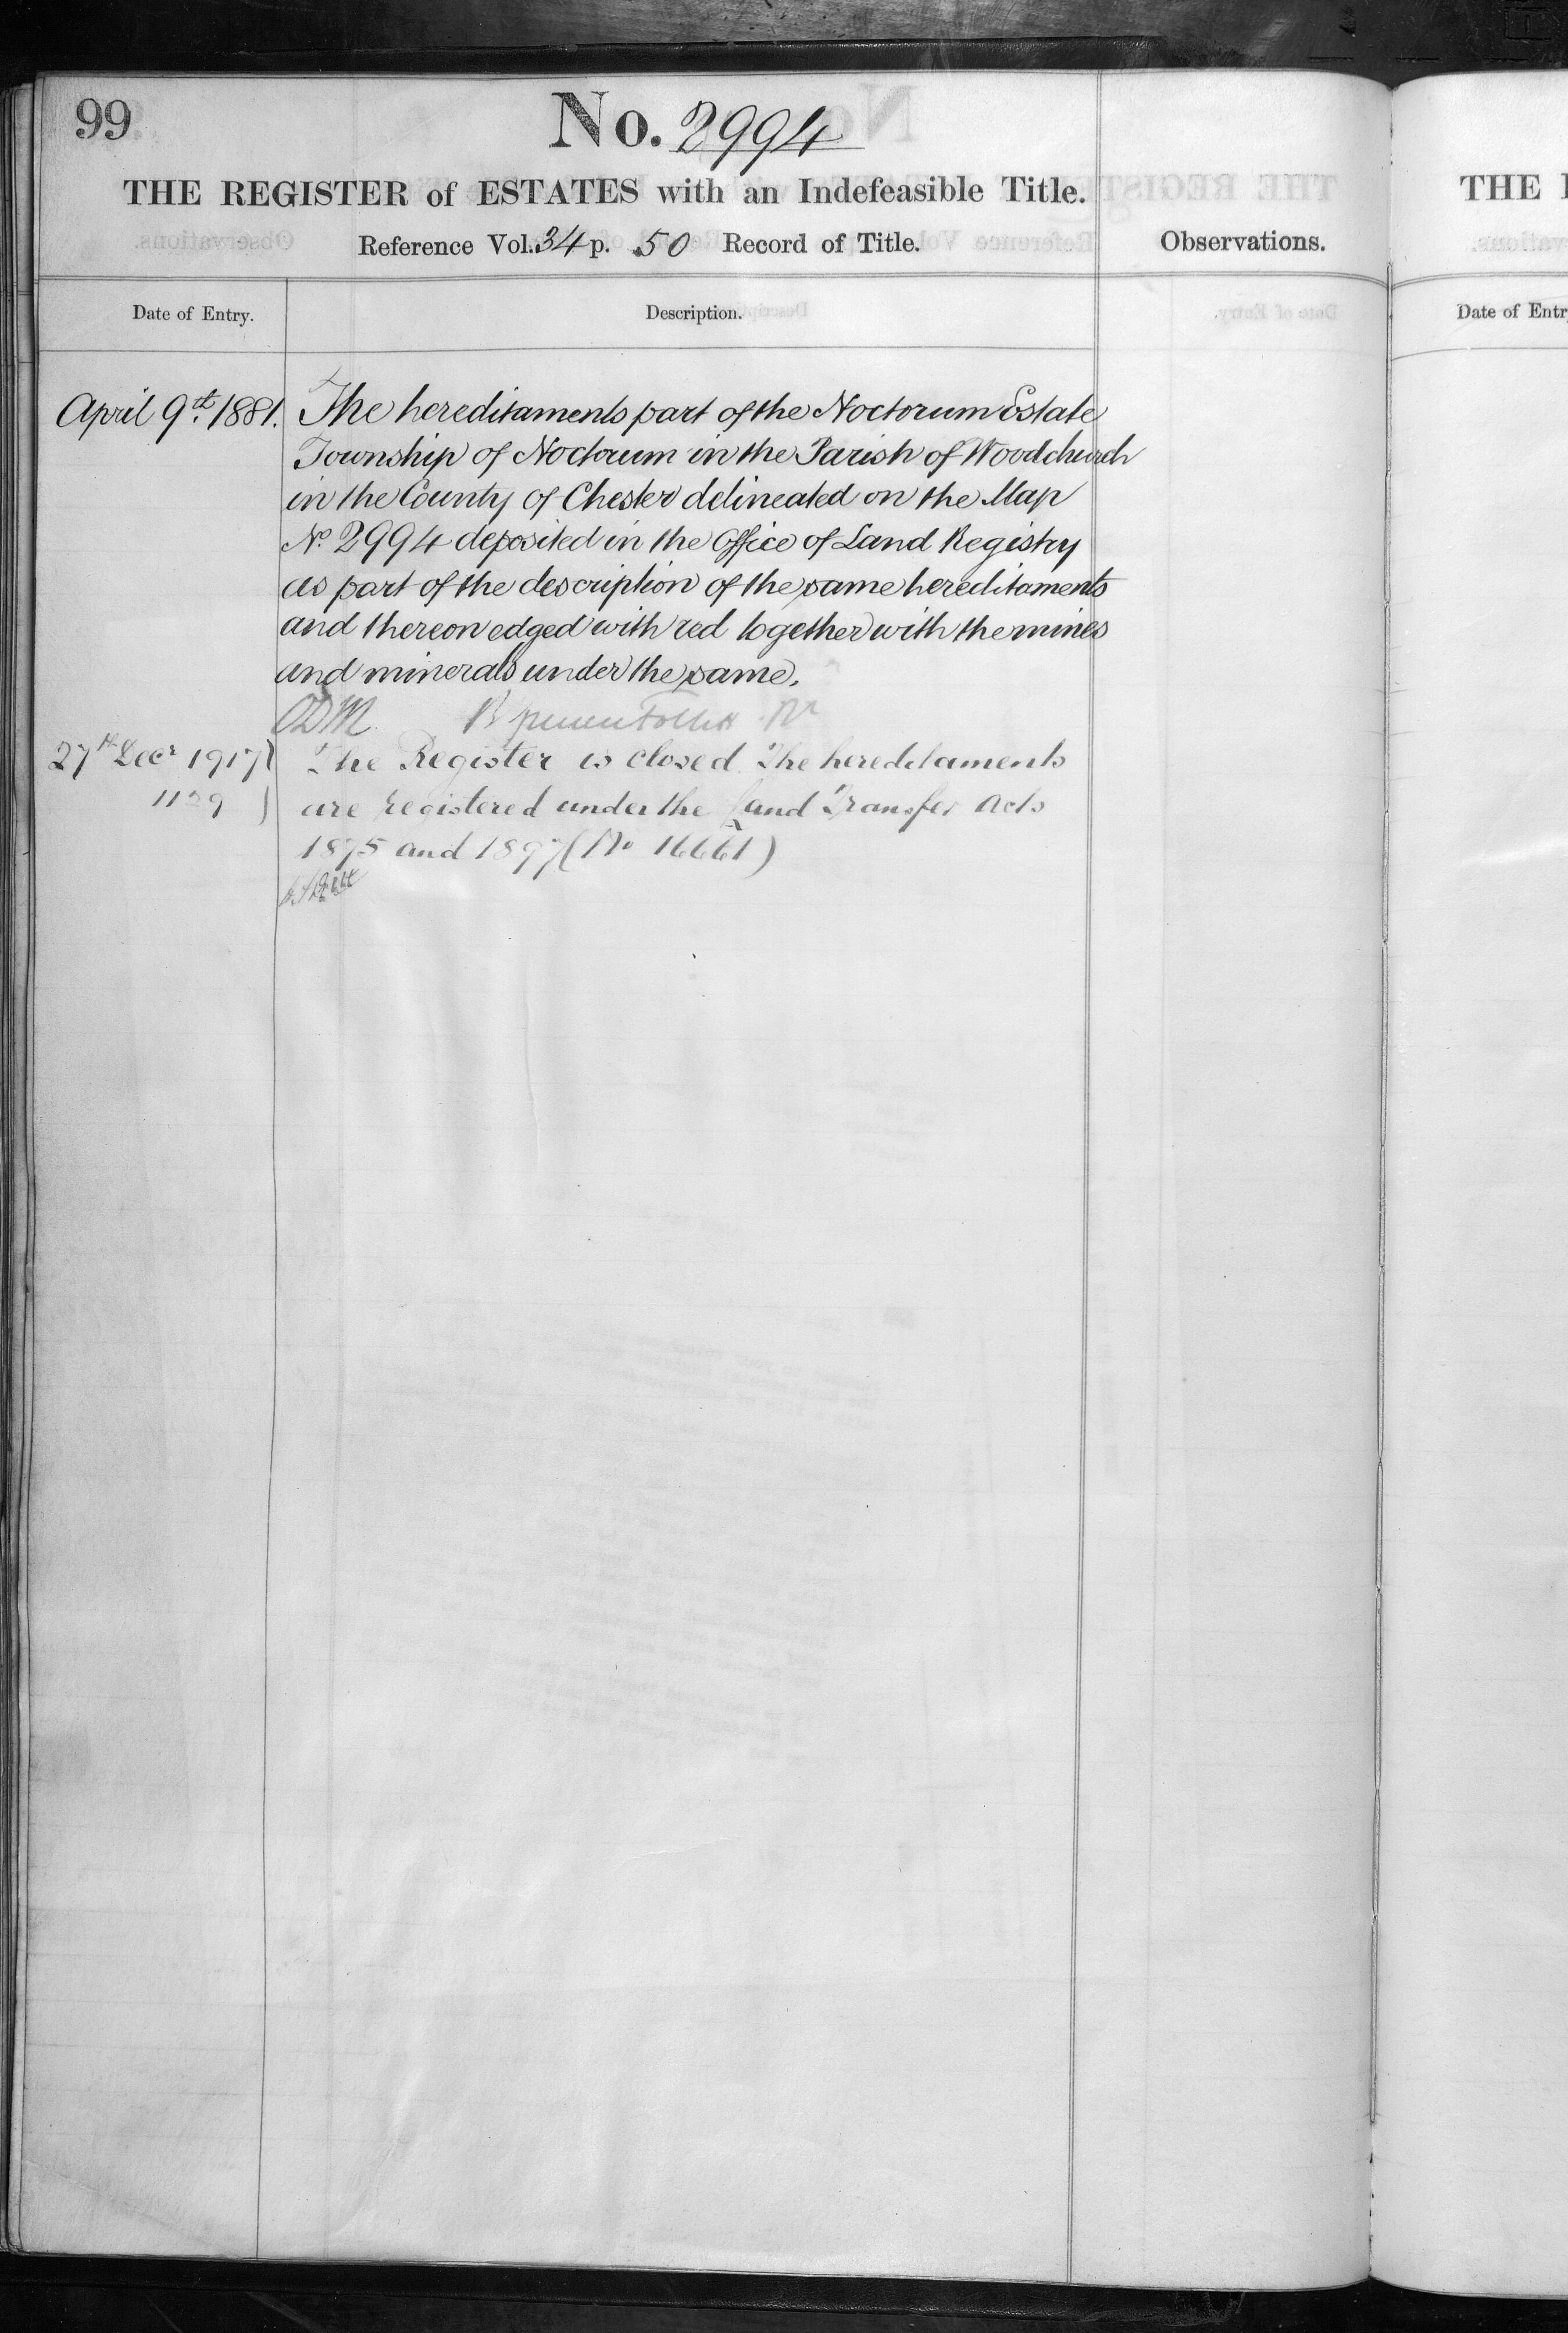 99
No. 2994
THE REGISTER of ESTATES with an Indefeasible Title.
Reference Vol. 34 p. 50 Record of Title.
Observations.
Date of Entry.
Description.
April 9th. 1881.
The hereditaments part of the Noctorum Estate
Township of Noctorum in the Parish of Woodchurch
in the County of Chester delineated on the Map
No. 2994 deposited in the Office of Land Registry
as part of the description of the same hereditaments
and thereon edged with red together with the mines
and minerals under the same.
ODM
27th Decr 1917
1129
The Register is closed. The hereditaments
are registered under the Land Transfer Acts
1875 and 1897 (No 16661)
THE
Date of Entr